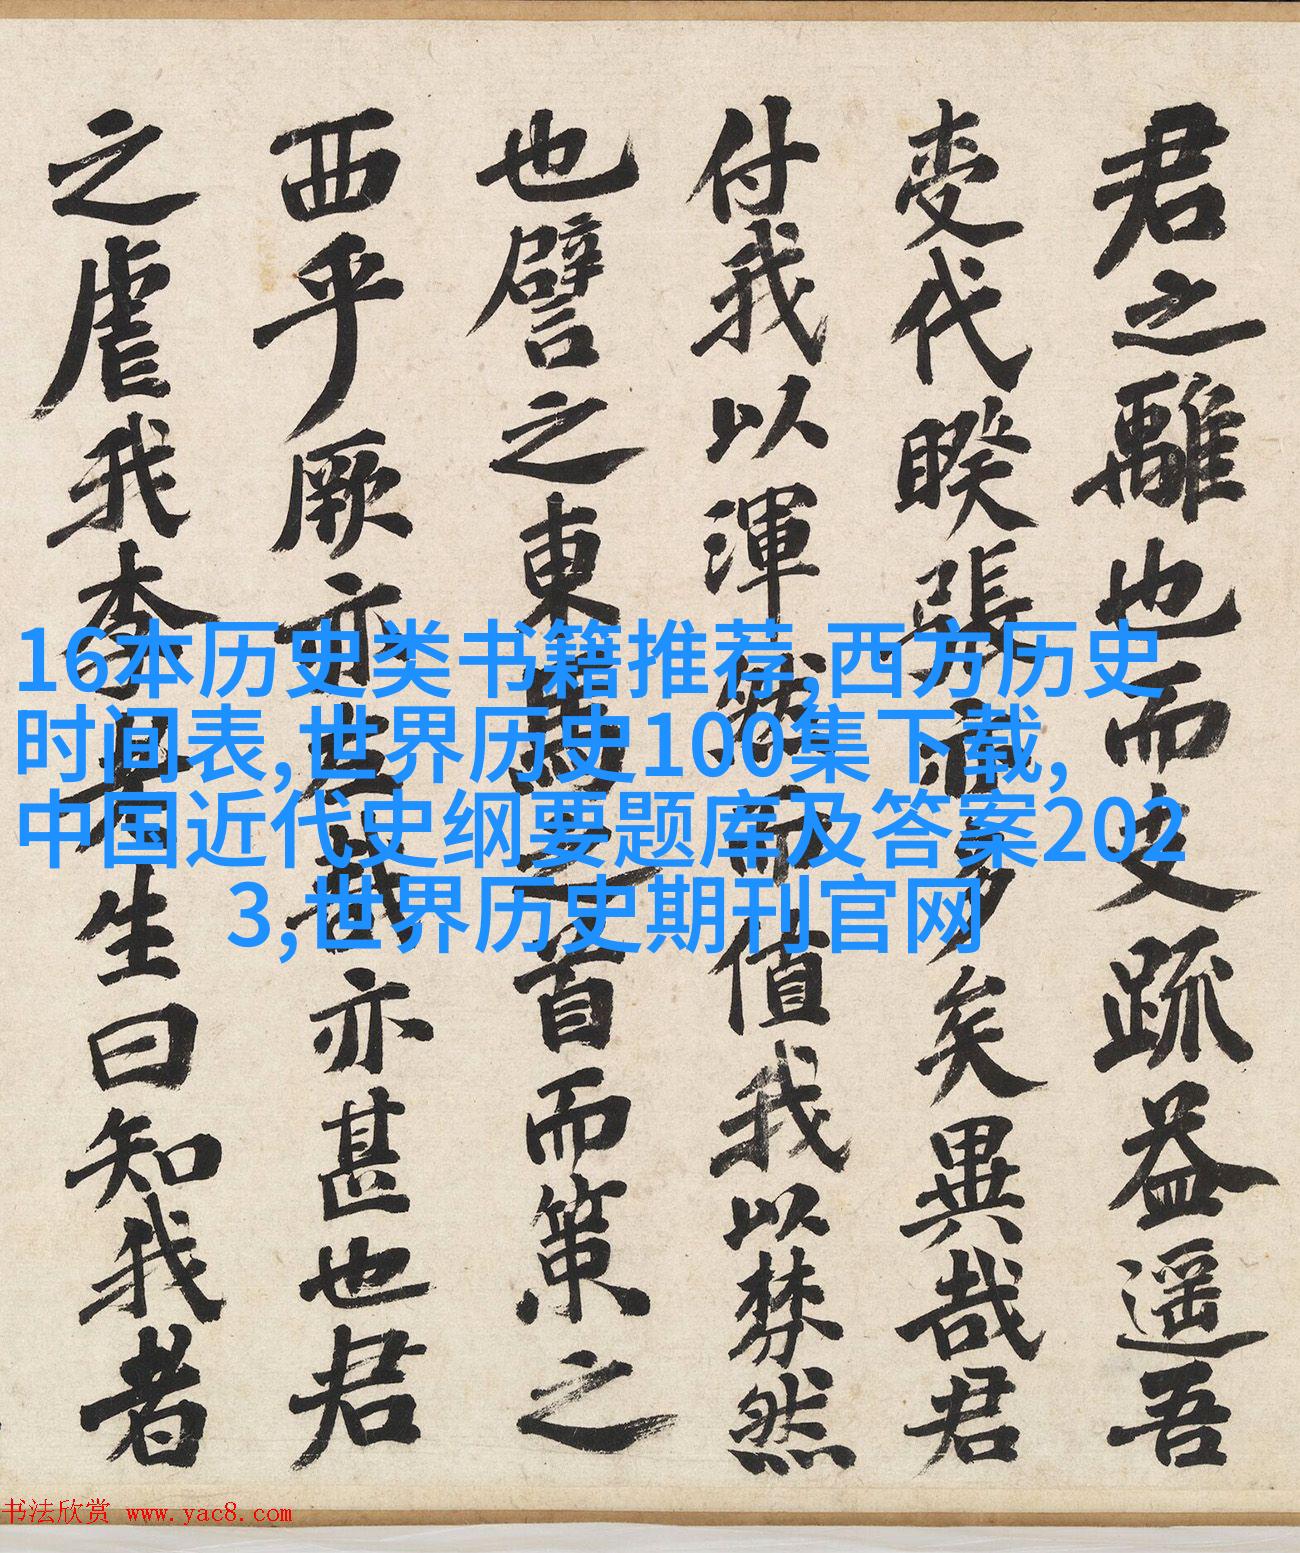 君之離也而交疏益遥吾
代睽張多矣異哉君
付我以渾而值我以棼然
也譬之東馬之首而策之
西乎厥亦左哉亦甚也君
之虐我李生曰知我者
16本历史类书籍推荐,西方历史
时间表,世界历史100集下载,
中国近代史纲要题库及答案202
3,世界历史期刊官网
书法欣赏 www.yac8.com